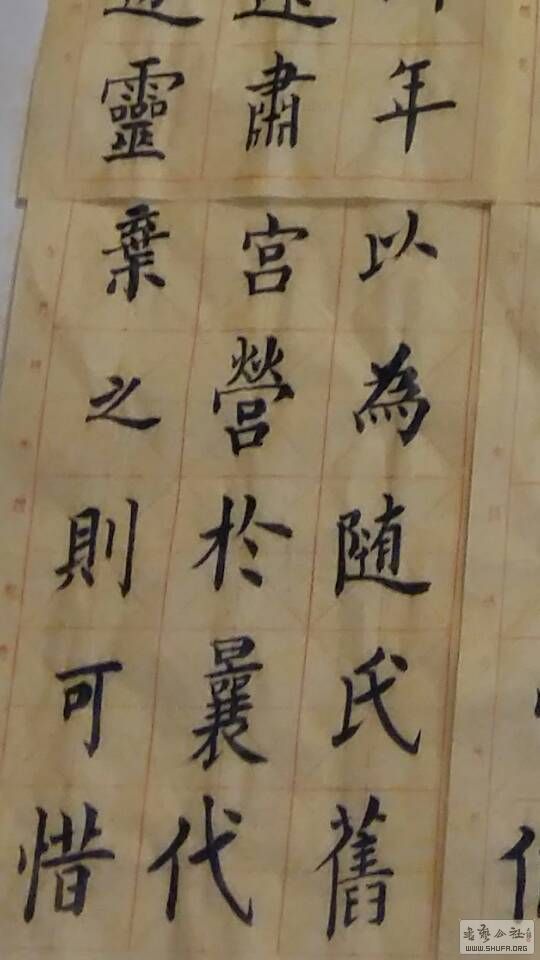 年以為随氏舊
肅宮營於曩代
靈棄之則可惜
书艺公社
WWW.SHUFA.ORG